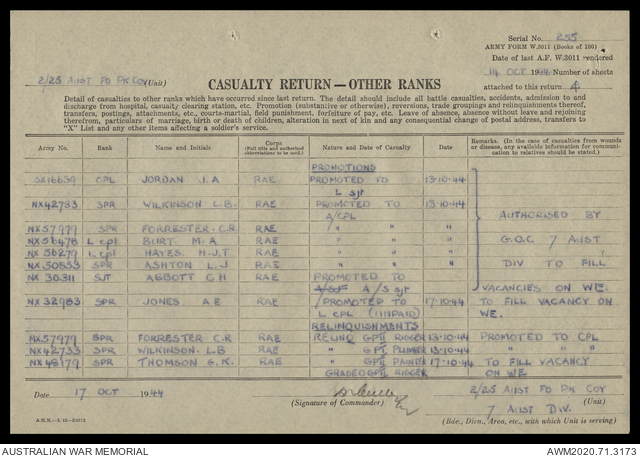 Serial No. 255
ARMY FORM W.3011 (Books of 100)
Date of last A.F. W.3011 rendered
14 OCT 1944 Number of sheets
attached to this return 4
2/25 AUST FD PK COY (Unit)
CASUALTY RETURN—OTHER RANKS
Detail of casualties to other ranks which have occurred since last return. The detail should include all battle casualties, accidents, admission to and
discharge from hospital, casualty clearing station, etc. Promotion (substantive or otherwise), reversions, trade groupings and relinquishments thereof,
transfers, postings, attachments, etc., courts-martial, field punishment, forfeiture of pay, etc. Leave of absence, absence without leave and rejoining
therefrom, particulars of marriage, birth or death of children, alteration in next of kin and any consequential change of postal address, transfers to
"X" List and any other items affecting a soldier's service.
Army No. Rank Name and Initials Corps (Full title and authorised abbreviations to be used.) Nature and Date of Casualty Date Remarks. (In the case of casualties from wounds or disease, any available information for communication to relatives should be stated.)
PROMOTIONS
SX16639 CPL JORDAN J.A RAE PROMOTED TO 13-10-44
L Sjt
NX42733 SPR WILKINSON L.B. RAE PROMOTED TO 13-10-44
A/CPL AUTHORISED BY
NX57979 SPR FORRESTER C.R. RAE " " "
NX56478 L cpl BURT M.A RAE " " " G.O.C 7 AUST
NX56279 L cpl HAYES H.J.T RAE " " "
NX50553 SPR ASHTON L.J RAE " " " DIV TO FILL
NX 30311 SJT ABBOTT C H RAE PROMOTED TO
A/S sjt VACANCIES ON WE.
NX 32983 SPR JONES A E RAE PROMOTED TO 17-10-44 TO FILL VACANCY ON
L CPL (UNPAID) WE.
RELINQUISHMENTS
NX57979 SPR FORRESTER C.R RAE RELINQ GPII RIGGER 13-10-44 PROMOTED TO CPL
NX42733 SPR WILKINSON L.B RAE " GPII PLUMBER 13-10-44 " " "
NX48179 SPR THOMSON G.K. RAE " GPII PAINTER 17-10-44 TO FILL VACANCY
GRADED GPII RIGGER ON WE
Date 17 OCT 1944
(Signature of Commander)
2/25 AUST FD PK COY
7 AUST DIV.
(Bde., Divn., Area, etc., with which Unit is serving)
AUSTRALIAN WAR MEMORIAL
AWM2020.71.3173